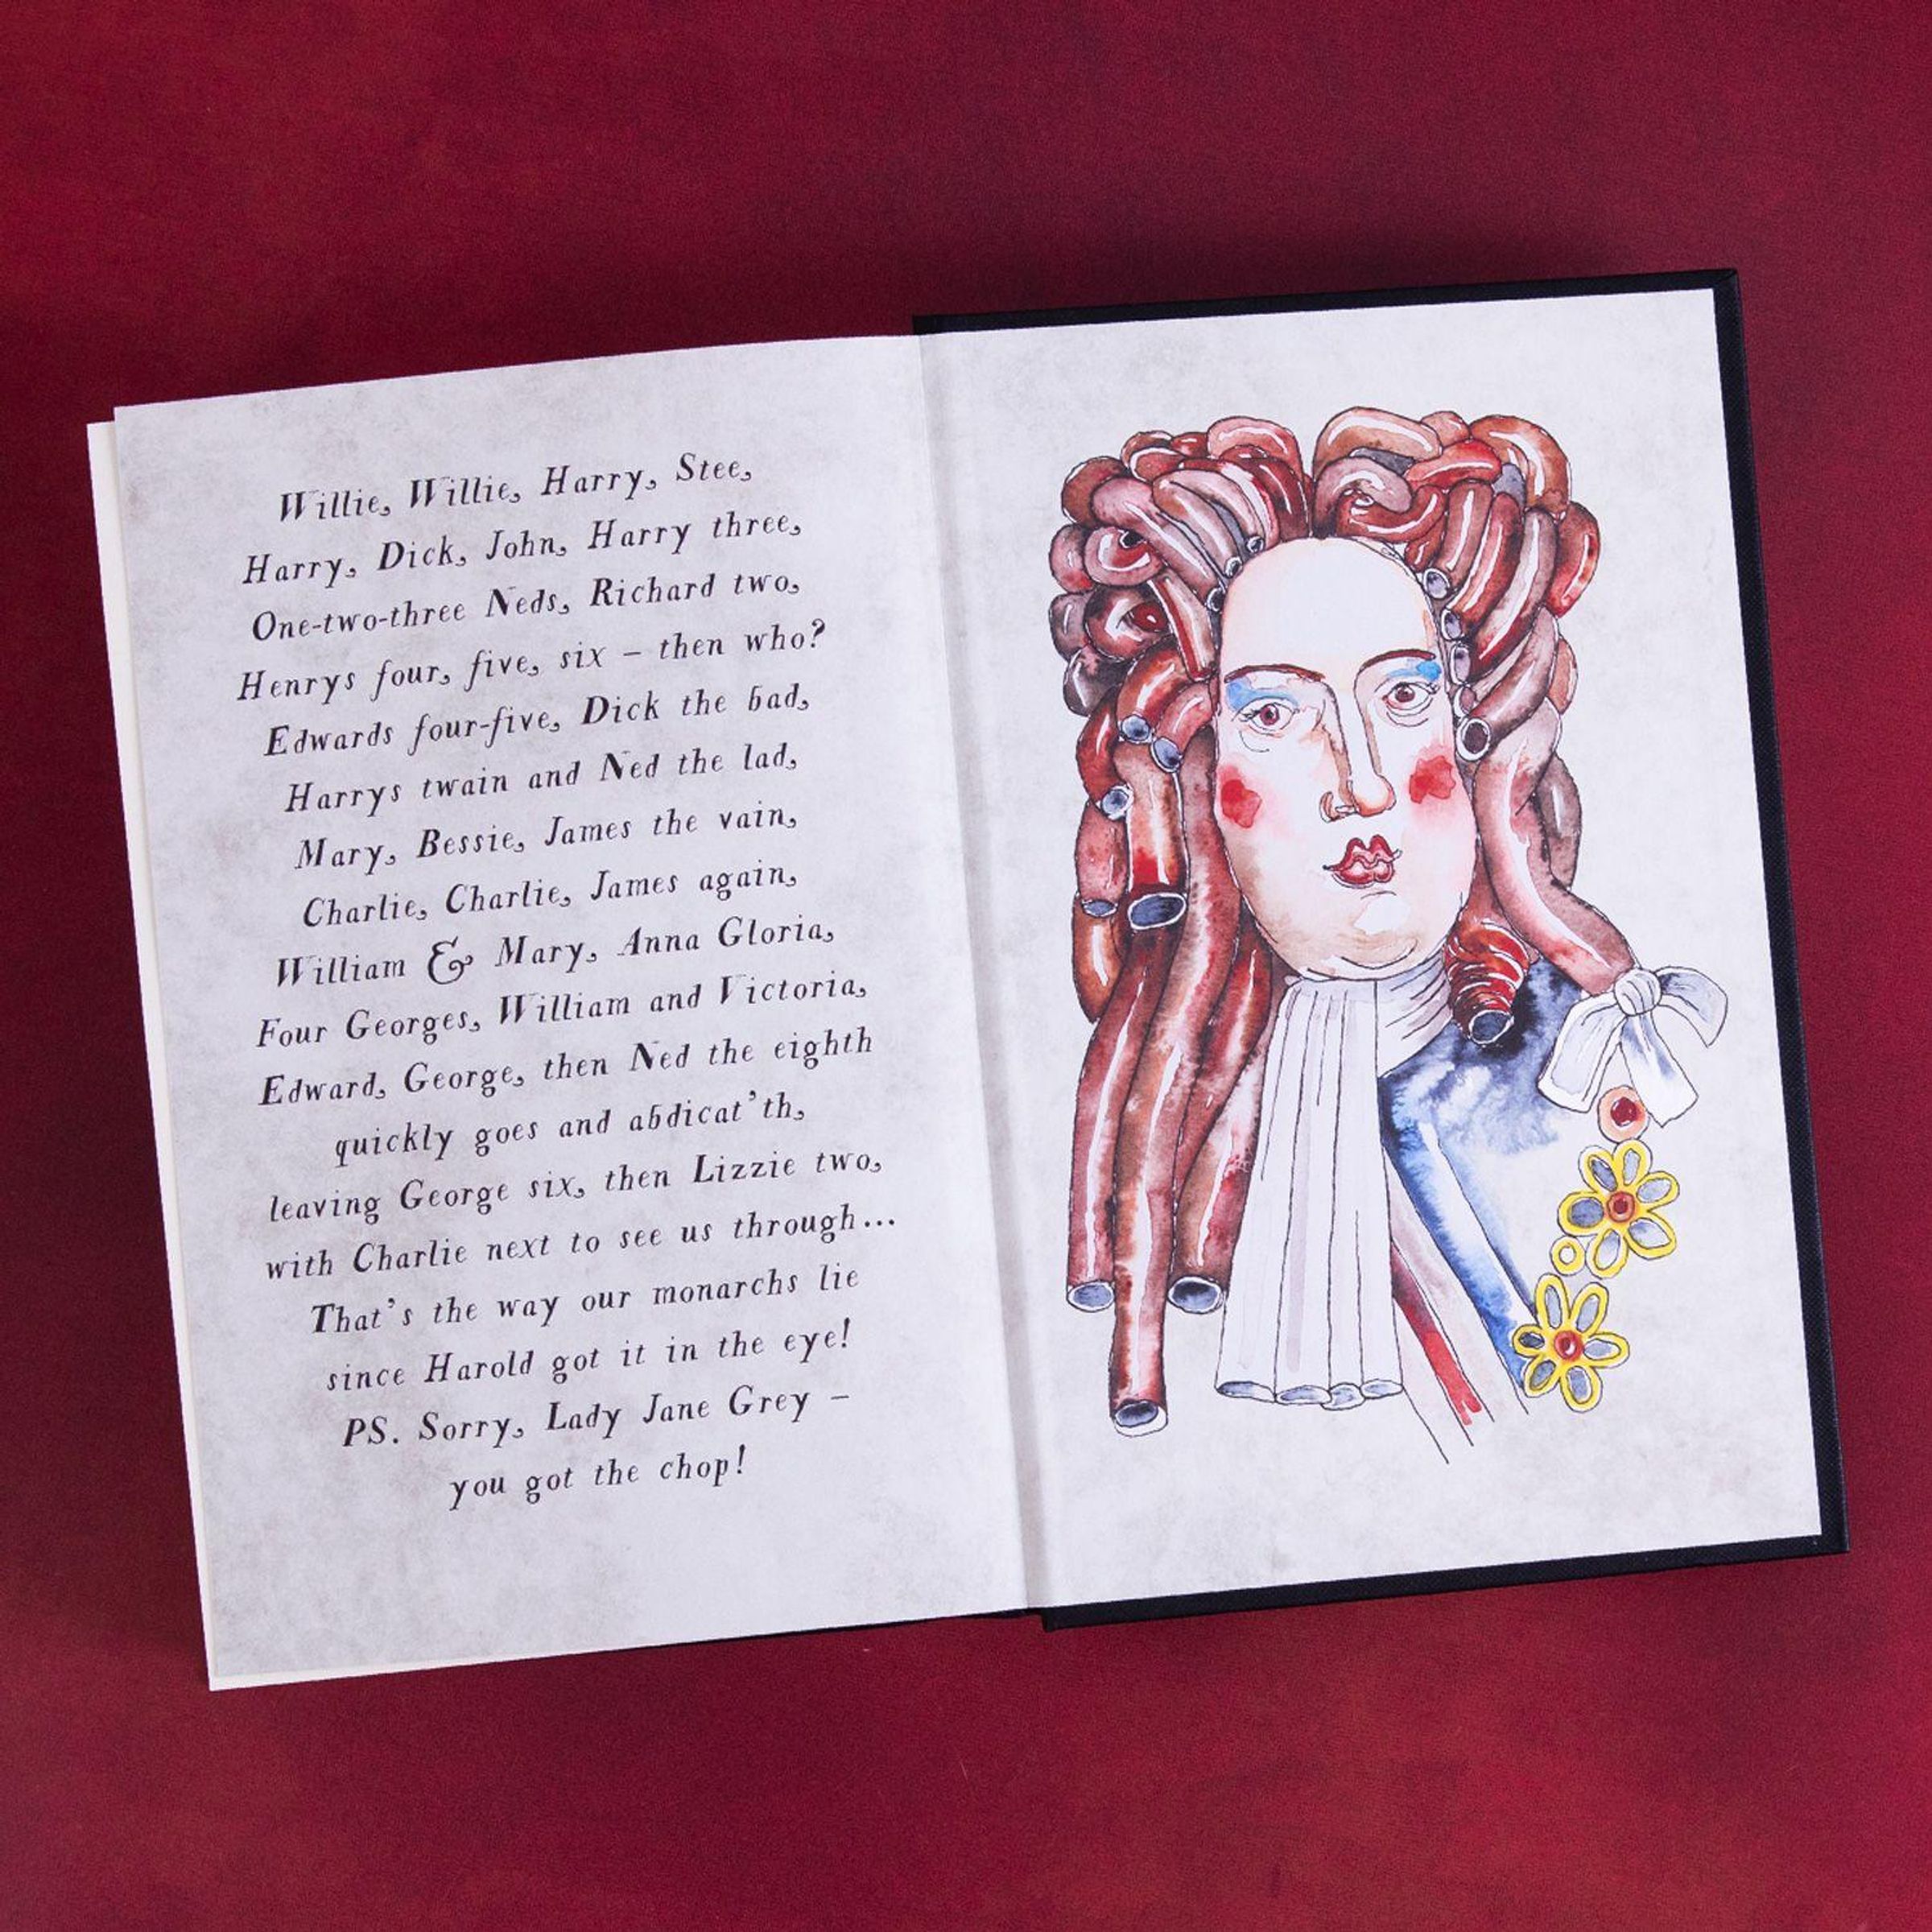 Willie, Willie, Harry, Stee,
Harry, Dick, John, Harry three,
One-two-three Neds, Richard two,
Henrys four, five, six – then who?
Edwards four-five, Dick the bad,
Harrys twain and Ned the lad,
Mary, Bessie, James the vain,
Charlie, Charlie, James again,
William & Mary, Anna Gloria,
Four Georges, William and Victoria,
Edward, George, then Ned the eighth
quickly goes and abdicat'th,
leaving George six, then Lizzie two,
with Charlie next to see us through...
That's the way our monarchs lie
since Harold got it in the eye!
PS. Sorry, Lady Jane Grey –
you got the chop!